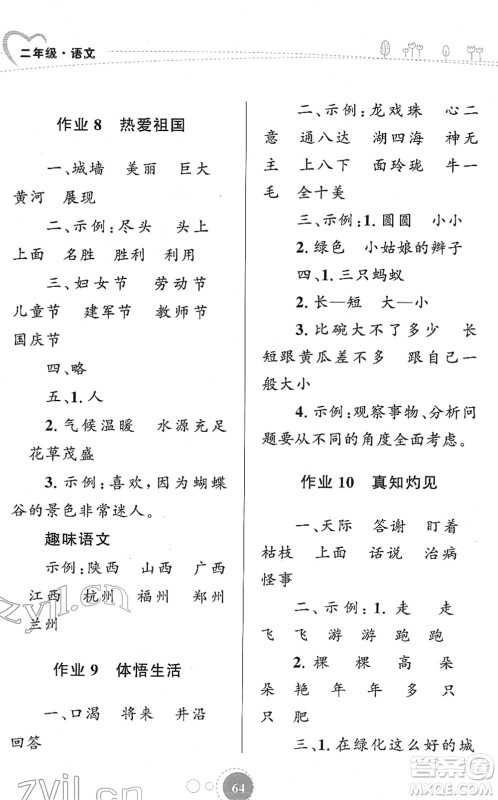 二年级·语文
作业 8 热爱祖国
一、城墙 美丽 巨大
黄河 展现
二、示例:尽头 头上
上面 名胜 胜利 利用
三、妇女节 劳动节
儿童节 建军节 教师节
国庆节
四、略
五、1. 人
2. 气候温暖 水源充足
花草茂盛
3. 示例:喜欢,因为蝴蝶
谷的景色非常迷人。
趣味语文
示例:陕西 山西 广西
江西 杭州 福州 郑州
兰州
作业 9 体悟生活
一、口渴 将来 井沿
回答
二、示例:龙戏珠 心二
意 通八达 湖四海 神无
主 上八下 面玲珑 牛一
毛 全十美
三、示例:1. 圆圆 小小
2. 绿色 小姑娘的辫子
四、1. 三只蚂蚁
2. 长—短 大—小
3. 比碗大不了多少 长
短跟黄瓜差不多 跟西瓜一
般大小
4. 示例:观察事物、分析问
题要从不同的角度全面考虑。
作业 10 真知灼见
一、天际 答谢 盯着
枯枝 上面 话说 治病
怪事
二、示例:1. 走 走
飞 飞 游 游 跑 跑
2. 棵 棵 高 高 朵
朵 艳 年 年 多 多
只 肥
三、1. 在绿化这么好的城
64
zyil.cn
zyil.cn
答案圈
MXQE.COM